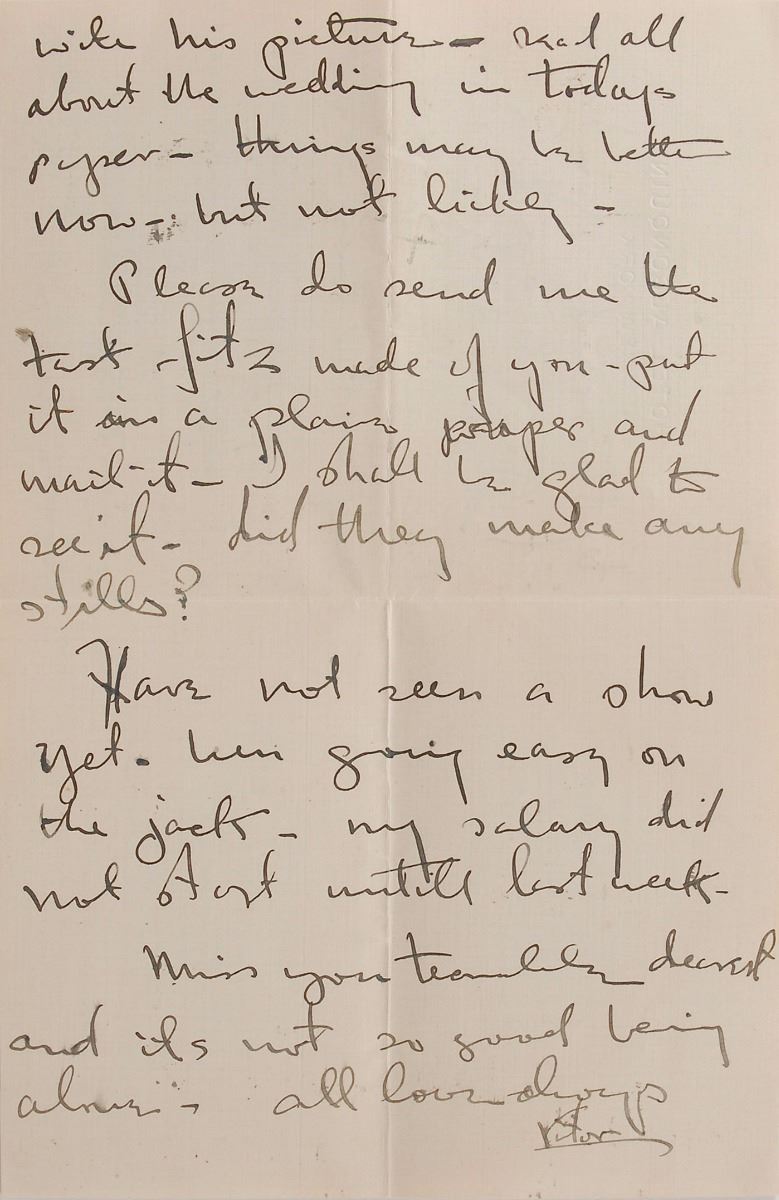 with his picture - read all
about the wedding in todays
paper - things may be better
now - but not likely -
Please do send me the
test Fitz made of you - put
it in a plain paper and
mail it - I shall be glad to
see it - did they make any
stills?
Have not seen a show
yet. been going easy on
the jack - my salary did
not start untill last week -
Miss you dearest
and its not so good being
alone - all love always